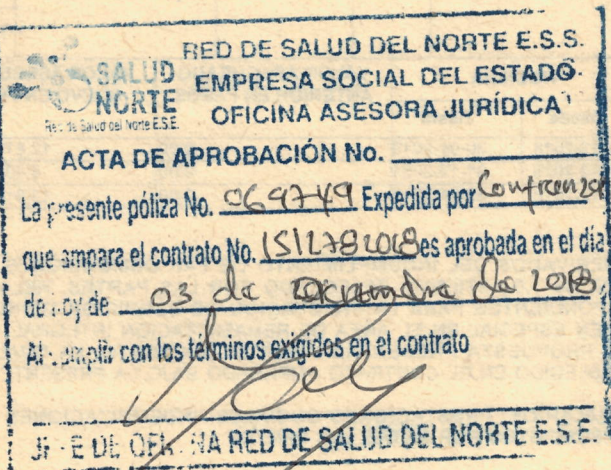 RED DE SALUD DEL NORTE E.S.S.
SALUD
NORTE
Red de Salud del Norte E.S.E.
EMPRESA SOCIAL DEL ESTADO
OFICINA ASESORA JURÍDICA
ACTA DE APROBACIÓN No.
La presente póliza No. 069749 Expedida por Confianza
que ampara el contrato No. 1512782018 es aprobada en el día
de hoy de 03 de Diciembre de 2018
Al cumplir con los términos exigidos en el contrato
JEFE DE OFICINA RED DE SALUD DEL NORTE E.S.E.